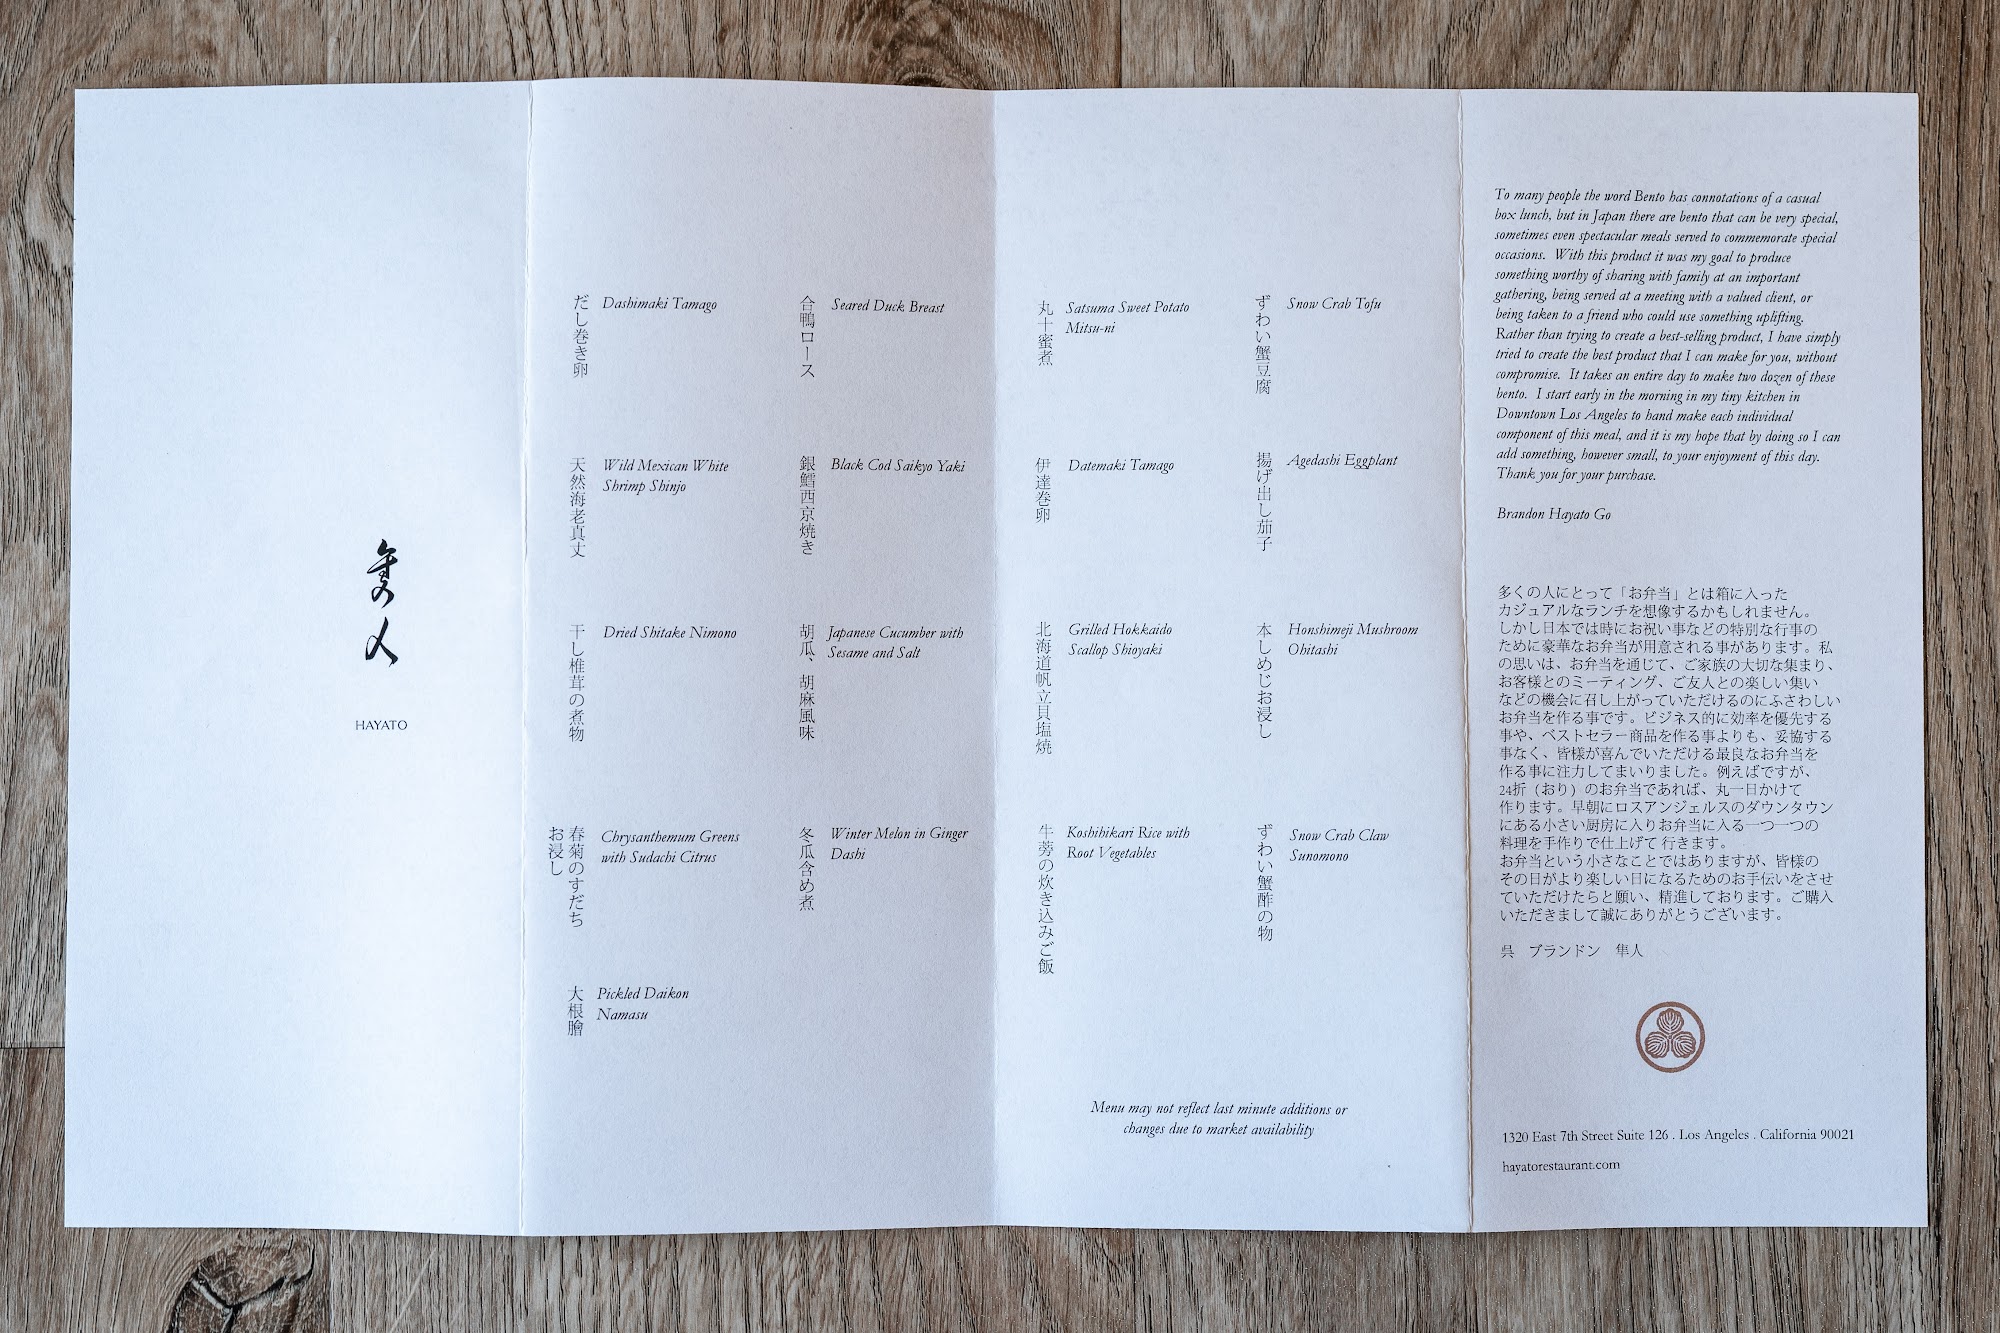 隼人
HAYATO
だし巻き卵
Dashimaki Tamago
合鴨ロース
Seared Duck Breast
天然海老真丈
Wild Mexican White
Shrimp Shinjo
銀鱈西京焼き
Black Cod Saikyo Yaki
干し椎茸の煮物
Dried Shitake Nimono
胡瓜、胡麻風味
Japanese Cucumber with
Sesame and Salt
春菊のすだち
お浸し
Chrysanthemum Greens
with Sudachi Citrus
冬瓜含め煮
Winter Melon in Ginger
Dashi
大根膾
Pickled Daikon
Namasu
丸十蜜煮
Satsuma Sweet Potato
Mitsu-ni
ずわい蟹豆腐
Snow Crab Tofu
伊達巻卵
Datemaki Tamago
揚げ出し茄子
Agedashi Eggplant
北海道帆立貝塩焼
Grilled Hokkaido
Scallop Shioyaki
本しめじお浸し
Honshimeji Mushroom
Ohitashi
牛蒡の炊き込みご飯
Koshihikari Rice with
Root Vegetables
ずわい蟹酢の物
Snow Crab Claw
Sunomono
Menu may not reflect last minute additions or
changes due to market availability
To many people the word Bento has connotations of a casual
box lunch, but in Japan there are bento that can be very special,
sometimes even spectacular meals served to commemorate special
occasions. With this product it was my goal to produce
something worthy of sharing with family at an important
gathering, being served at a meeting with a valued client, or
being taken to a friend who could use something uplifting.
Rather than trying to create a best-selling product, I have simply
tried to create the best product that I can make for you, without
compromise. It takes an entire day to make two dozen of these
bento. I start early in the morning in my tiny kitchen in
Downtown Los Angeles to hand make each individual
component of this meal, and it is my hope that by doing so I can
add something, however small, to your enjoyment of this day.
Thank you for your purchase.
Brandon Hayato Go
多くの人にとって「お弁当」とは箱に入った
カジュアルなランチを想像するかもしれません。
しかし日本では時にお祝い事などの特別な行事の
ために豪華なお弁当が用意される事があります。私
の思いは、お弁当を通じて、ご家族の大切な集まり、
お客様とのミーティング、ご友人との楽しい集い
などの機会に召し上がっていただけるのにふさわしい
お弁当を作る事です。ビジネス的に効率を優先する
事や、ベストセラー商品を作る事よりも、妥協する
事なく、皆様が喜んでいただける最良なお弁当を
作る事に注力してまいりました。例えばですが、
24折（おり）のお弁当であれば、丸一日かけて
作ります。早朝にロスアンジェルスのダウンタウン
にある小さい厨房に入りお弁当に入る一つ一つの
料理を手作りで仕上げて 行きます。
お弁当という小さなことではありますが、皆様の
その日がより楽しい日になるためのお手伝いをさせ
ていただけたらと願い、精進しております。ご購入
いただきまして誠にありがとうございます。
呉　ブランドン　隼人
1320 East 7th Street Suite 126 . Los Angeles . California 90021
hayatorestaurant.com